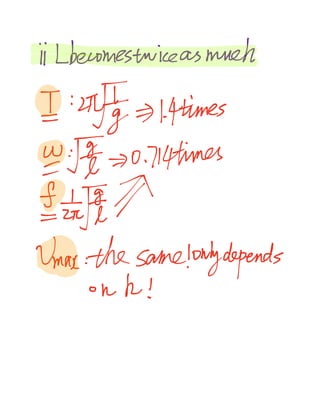 ii L becomes twice as much
T : 2π√l/g ⇒ 1.4 times
ω : √g/l ⇒ 0.714 times
f 1/2π √g/l
Vmax : the same! only depends
on h!